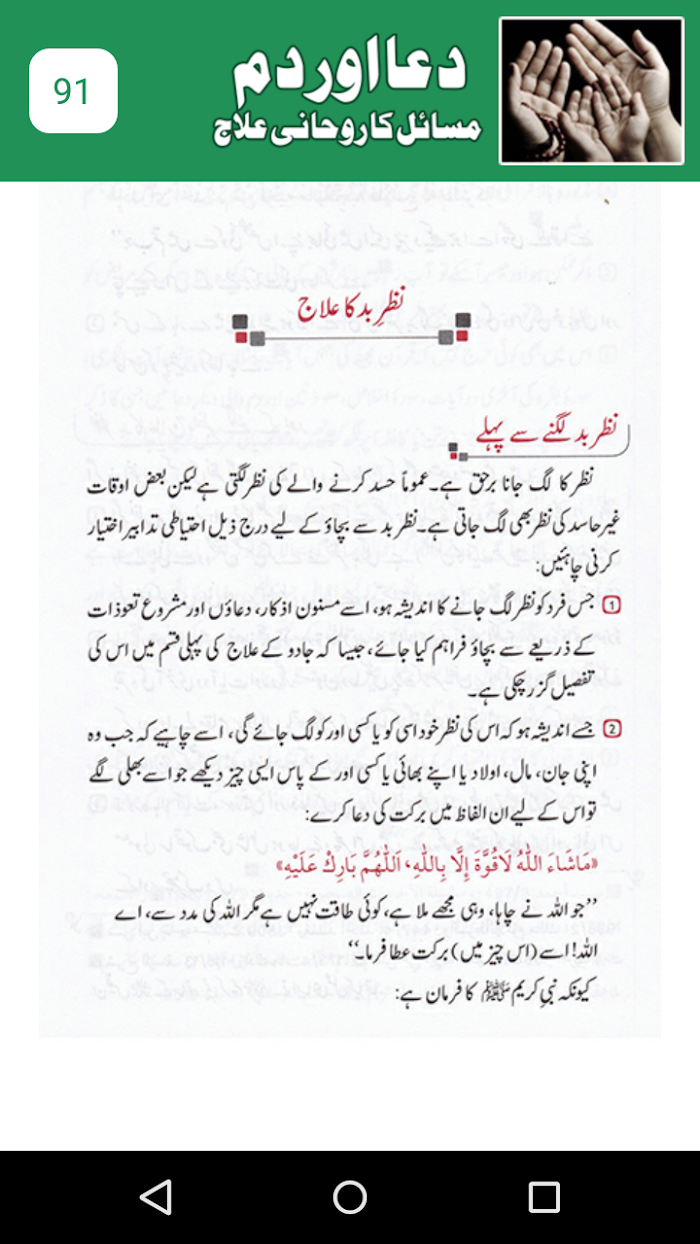 91
دعا اور دم
مسائل کا روحانی علاج
نظرِ بد کا علاج
نظر بد لگنے سے پہلے
نظر کا لگ جانا برحق ہے۔ عموماً حسد کرنے والے کی نظر لگتی ہے لیکن بعض اوقات
غیر حاسد کی نظر بھی لگ جاتی ہے۔ نظر بد سے بچاؤ کے لیے درج ذیل احتیاطی تدابیر اختیار
کرنی چاہئیں:
1 جس فرد کو نظر لگ جانے کا اندیشہ ہو، اسے مسنون اذکار، دعاؤں اور مشروع تعوذات
کے ذریعے سے بچاؤ فراہم کیا جائے، جیسا کہ جادو کے علاج کی پہلی قسم میں اس کی
تفصیل گزر چکی ہے۔
2 جسے اندیشہ ہو کہ اس کی نظر خود اسی کو یا کسی اور کو لگ جائے گی، اسے چاہیے کہ جب وہ
اپنی جان، مال، اولاد یا اپنے بھائی یا کسی اور کے پاس ایسی چیز دیکھے جو اسے بھلی لگے
تو اس کے لیے ان الفاظ میں برکت کی دعا کرے:
«مَاشَاءَ اللّٰهُ لَاقُوَّةَ إِلَّا بِاللّٰهِ، اَللّٰهُمَّ بَارِكْ عَلَيْهِ»
’’جو اللہ نے چاہا، وہی مجھے ملا ہے، کوئی طاقت نہیں ہے مگر اللہ کی مدد سے، اے
اللہ! اسے (اس چیز میں) برکت عطا فرما۔‘‘
کیونکہ نبی کریم ﷺ کا فرمان ہے: